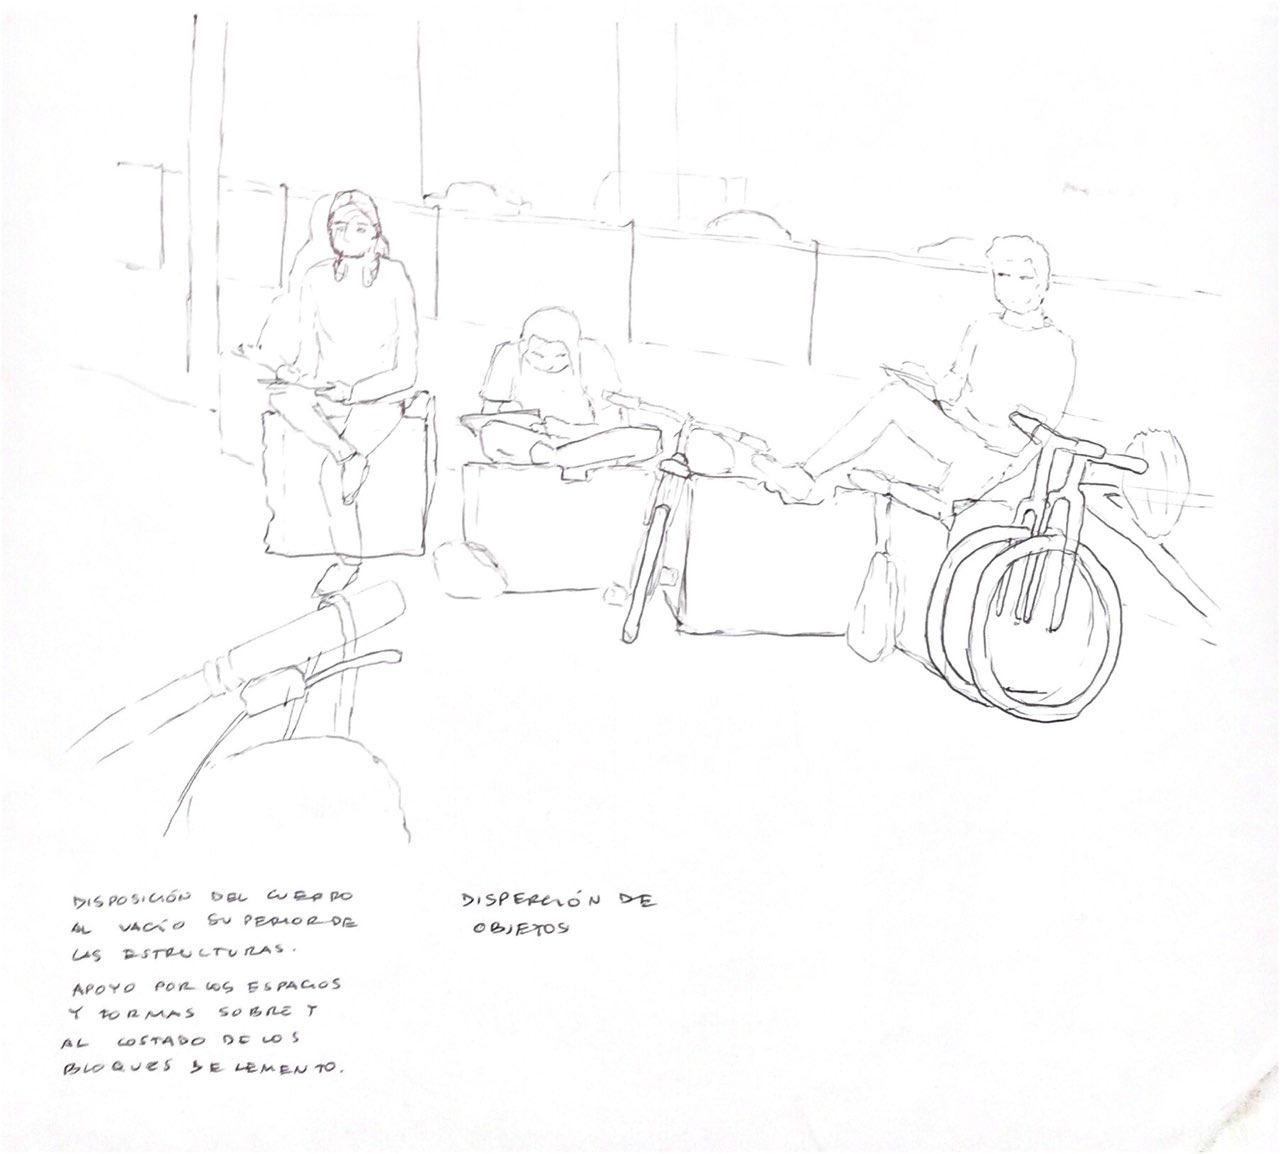 DISPOSICIÓN DEL CUERPO
AL VACÍO SUPERIOR DE
LAS ESTRUCTURAS.
APOYO POR LOS ESPACIOS
Y FORMAS SOBRE Y
AL COSTADO DE LOS
BLOQUES DE CEMENTO.
DISPERCIÓN DE
OBJETOS